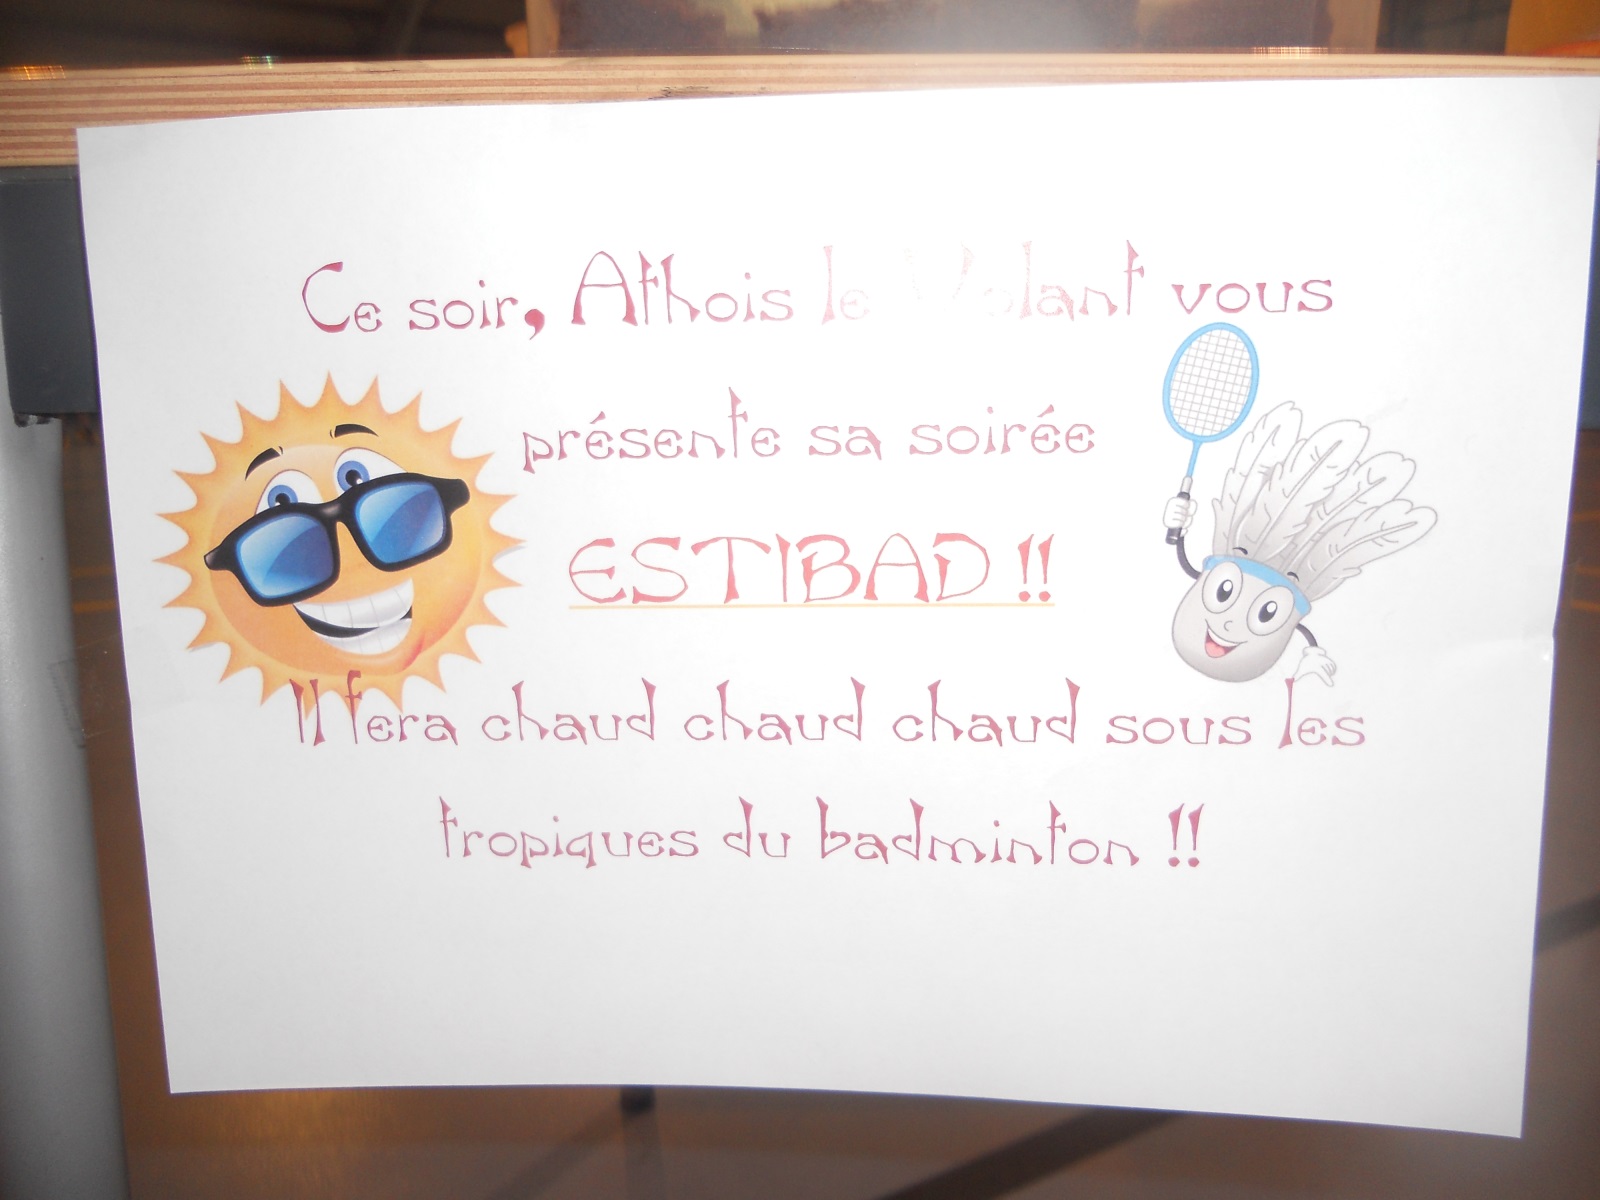 Ce soir, Athois le Volant vous
présente sa soirée
ESTIBAD !!
Il fera chaud chaud chaud sous les
tropiques du badminton !!